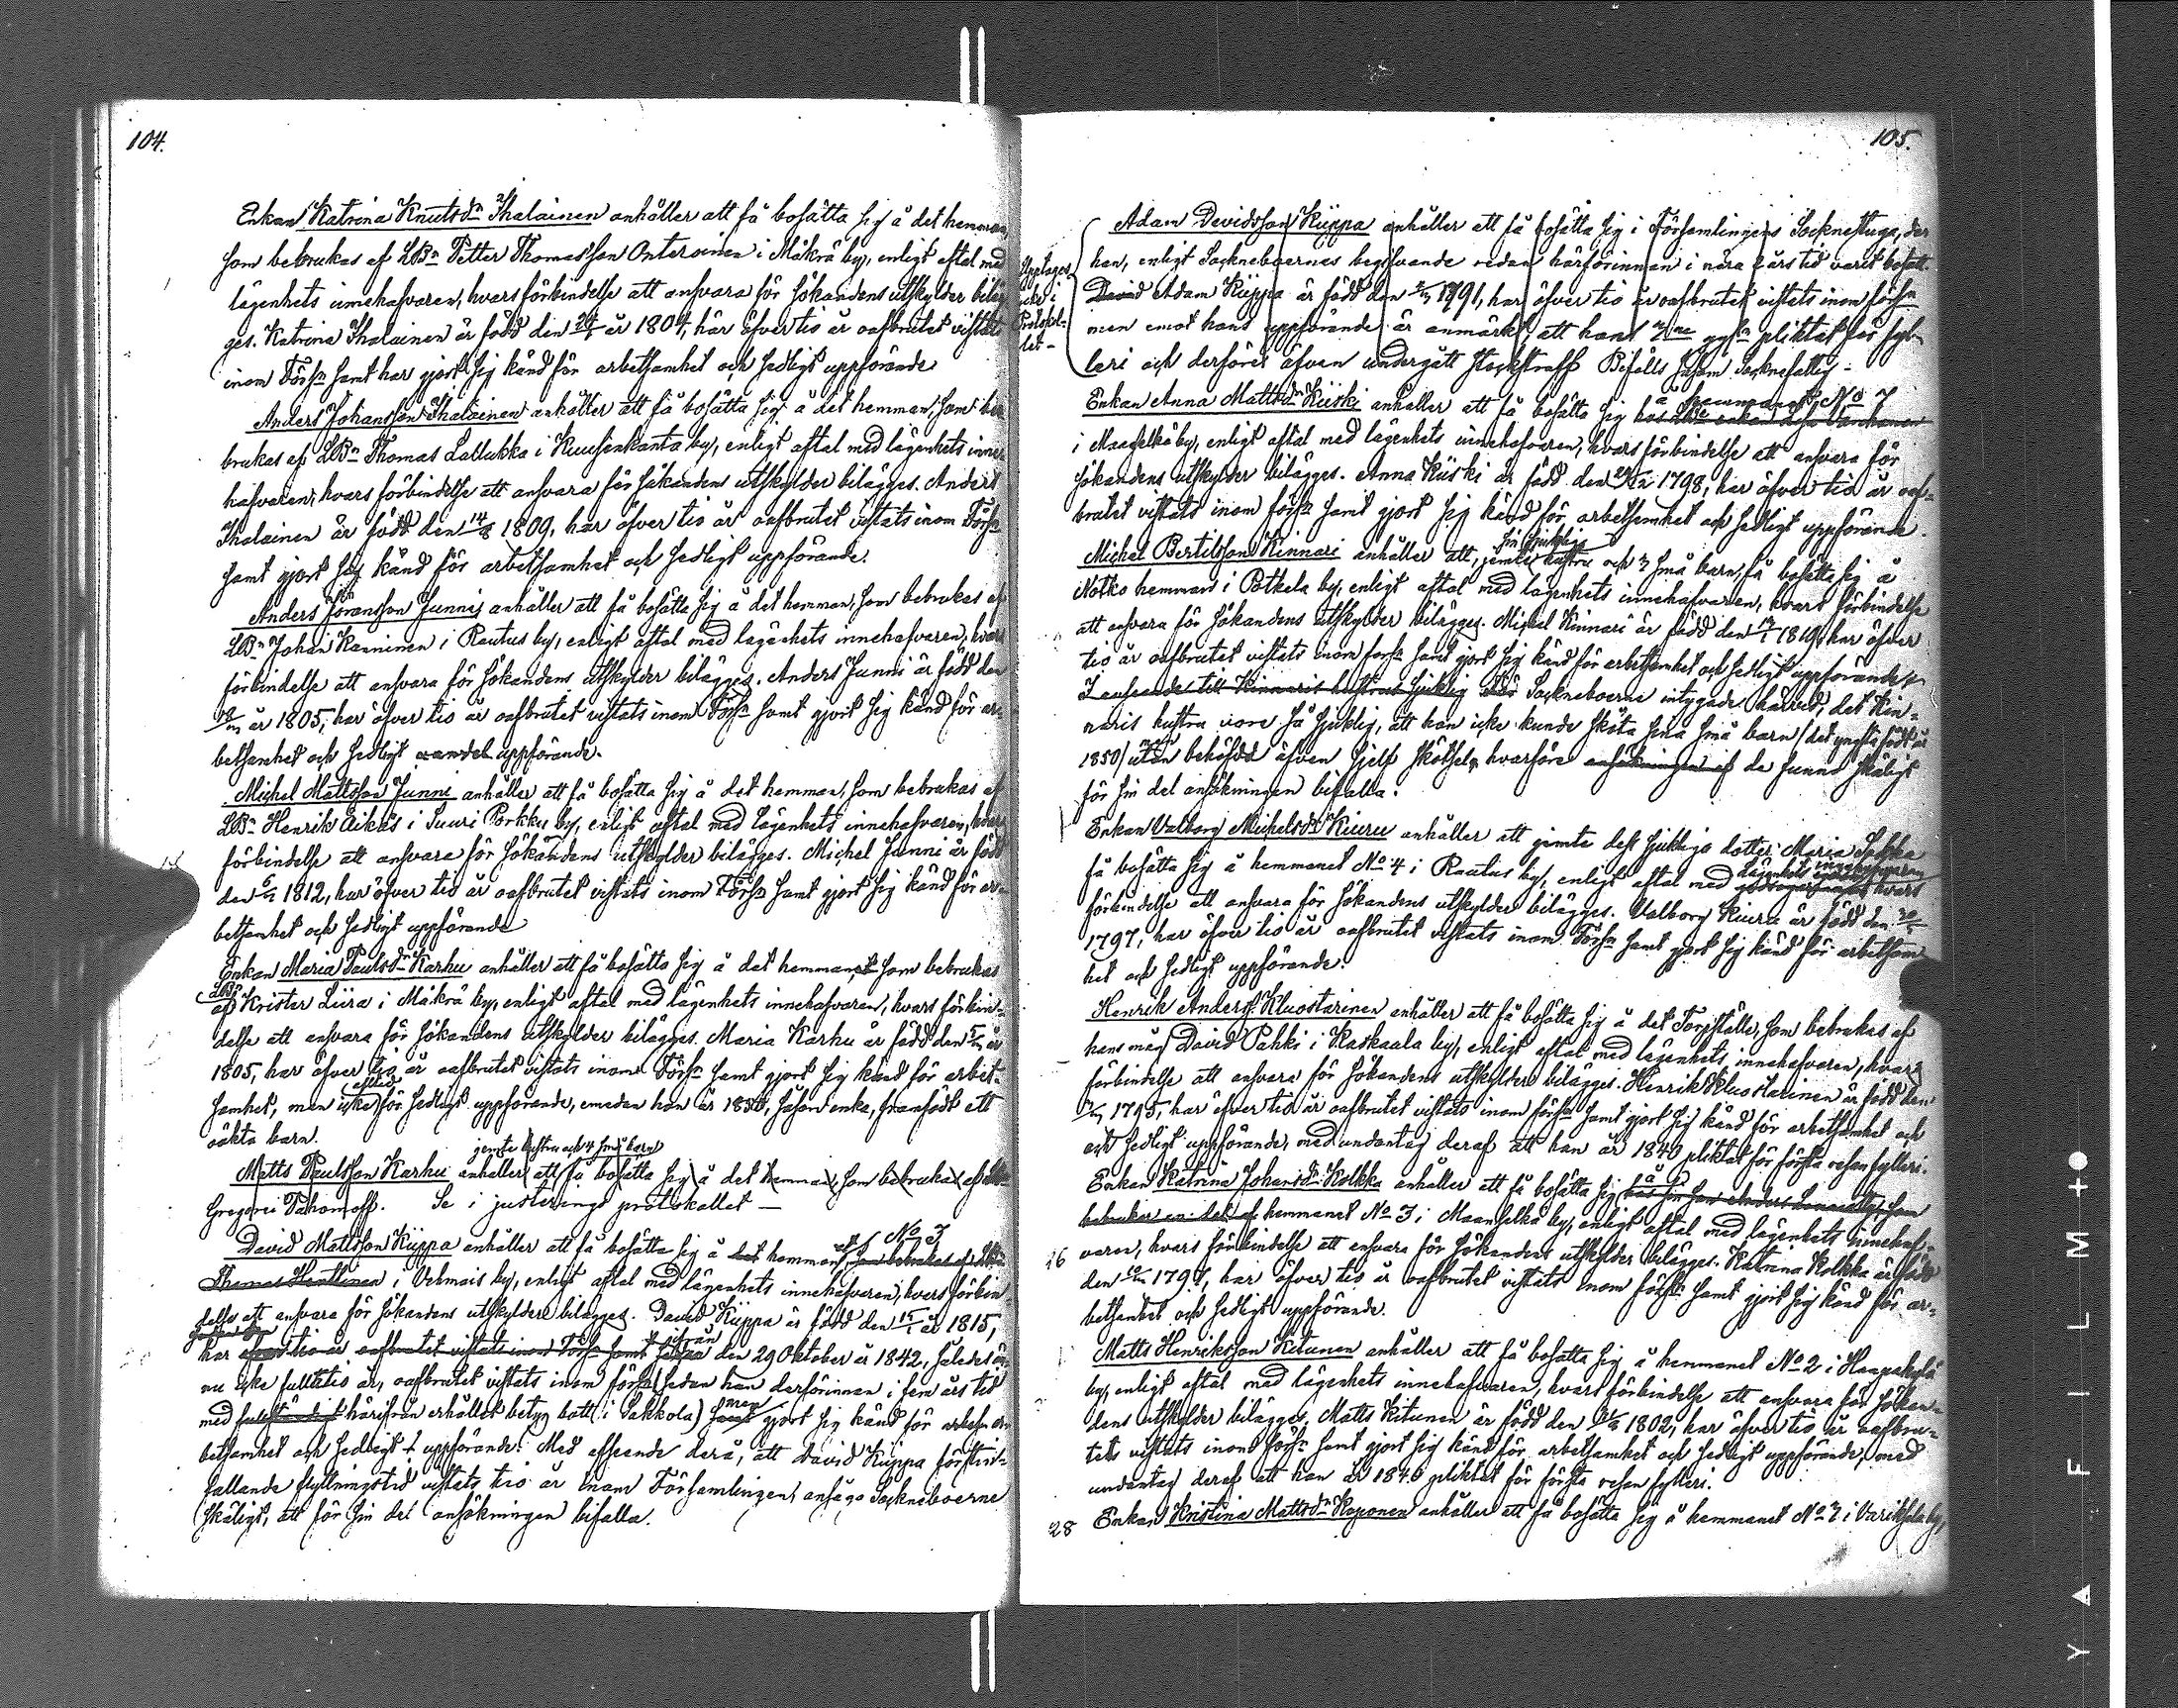 104.
Enkan Katrina Knutsdr Ihalainen anhåller att få bosätta sig å det hemman,
som bebrukas af LBn Petter Thomasson Onteroinen i Mäkrä by, enligt aftal med
lägenhets innehafvaren, hvars förbindelse att ansvara för sökandens utskylder biläg
ges. Katrina Ihalainen är född den år 1804, har öfver tio år oafbrutet vistats
inom Förs:n samt har gjort sig känd för arbetsamhet och sedligt uppförande
Anders Johansson Ihalainen anhåller att få bosätta sig å det hemman, som be
brukas af LBn Thomas Lallukka i Kuusenkanta by, enligt aftal med lägenhets inne
hafvaren, hvars förbindelse att ansvara för sökandens utskylder bilägges. Anders
Ihalainen är född den 14/8 1809, har öfver tio år oafbrutet vistats inom Förs:n
samt gjort sig känd för arbetsamhet och sedligt uppförande.
Anders Göransson Junni anhåller att få bosätta sig å det hemman, som bebrukas af
LBn Johan Kanninen i Rautus by, enligt aftal med lägenhets innehafvaren, hvars
förbindelse att ansvara för sökandens utskylder bilägges. Anders Junni är född den
år 1805, har öfver tio år oafbrutet vistats inom Förs:n samt gjort sig känd för ar=
betsamhet och sedligt vandel uppförande.
Michel Mattsson Junni anhåller att få bosätta sig å det hemman, som bebrukas af
LBn Henrik Äikäs i Suuri Porkku by, enligt aftal med lägenhets innehafvaren, hvars
förbindelse att ansvara för sökandens utskylder bilägges. Michel Junni är född
den 1812, har öfver tio år oafbrutet vistats inom Förs:n samt gjort sig känd för ar
betsamhet och sedligt uppförande
Enkan Maria Paulsdr Karhu anhåller att få bosätta sig å det hemman, som bebrukas
af LBn Krister Liira i Mäkrä by, enligt aftal med lägenhets innehafvaren, hvars förbin=
delse att ansvara för sökandens utskylder bilägges. Maria Karhu är född den år
1805, har öfver tio år oafbrutet vistats inom Förs:n samt gjort sig känd för arbet=
samhet, men icke för sedligt uppförande, emedan hon år, såsom enka, framfödt ett
oäkta barn.
jemte hustru och 4 små barn
Matts Paulsson Karhu anhåller att få bosätta sig å det hemman, som bebrukas af
Gregori Pahomoff. Se i justerings protokollet —
David Mattsson Kiippa anhåller att få bosätta sig å det hemmanet No 3 som bebrukas af
Thomas Hentinen i Vehmais by, enligt aftal med lägenhets innehafvaren, hvars förbin
delse att ansvara för sökandens utskylder bilägges. David Kiippa är född den år 1815,
har öfver tio år oafbrutet vistats inom Förs:n samt ifrån den 29 Oktober år 1842, således än
nu icke fulla tio år, oafbrutet vistats inom förs:n, sedan han derförinnan i fem års tid
med härifrån erhållet betyg bott (i Sakkola) samt men gjort sig känd för
betsamhet och sedligt uppförande. Med afseende derå, att David Kiippa förstin=
fallande flyttningstid vistats tio år inom Församlingen, ansågo Sockneboerne
skäligt, att för sin del ansökningen bifalla.
105.
Upptages icke i Protokol= let —
Adam Davidsson Kiippa anhåller att få bosätta sig i Församlingens Socknestuga, der
han, enligt Sockneboernes begifvande redan härförinnan i nära 2 års tid varit bosatt.
David Adam Kiippa är född den 1791, har öfver tio år oafbrutet vistats inom förs:n
men emot hans uppförande är anmärkt, att han 2:ne gg:r pliktat för fyl=
leri och derföre äfven undergått stockstraff Bifölls såsom Sockne fattig.
Enkan Anna Mattsdr Kiiski anhåller att få bosätta sig å hemmanet No 7
i Maaselkä by, enligt aftal med lägenhets innehafvaren, hvars förbindelse att ansvara för
sökandens utskylder bilägges. Anna Kiiski är född den 1798, har öfver tio år oaf=
brutet vistats inom förs:n samt gjort sig känd för arbetsamhet och sedligt uppförande.
Michel Bertilsson Kinnari anhåller att, jemte sin sjukliga hustru och 3 små barn, få bosätta sig å
Notko hemman i Potkela by, enligt aftal med lägenhets innehafvaren, hvars förbindelse
att ansvara för sökandens utskylder bilägges. Michel Kinnari är född den 1819, har öfver
tio år oafbrutet vistats inom förs:n samt gjort sig känd för arbetsamhet och sedligt uppförande.
I anseende till Kinnaris hustrus sjuklig Sockneboerne intygade härvid, det Kin=
naris hustru vore så sjuklig, att hon icke kunde sköta sina små barn (det yngsta född år
1850) utan behöfde äfven sjelf skötsel, hvarföre ansökningen af de funno skäligt
för sin del ansökningen bifalla.
Enkan Valborg Michelsdr Kiuru anhåller att jemte dess sjukliga dotter Maria
få bosätta sig å hemmanet No 4 i Rautus by, enligt aftal med lägenhets innehafvaren hvars
förbindelse att ansvara för sökandens utskylder bilägges. Valborg Kiuru är född den
1797, har öfver tio år oafbrutet vistats inom Förs:n samt gjort sig känd för arbetsam
het och sedligt uppförande.
Henrik Anderss. Kluostarinen anhåller att få bosätta sig å det Torpställe, som bebrukas af
hans måg David Pahki i Kaskaala by, enligt aftal med lägenhets innehafvaren, hvars
förbindelse att ansvara för sökandens utskylder bilägges. Henrik Kluostarinen är född den
1795, har öfver tio år oafbrutet vistats inom förs:n samt gjort sig känd för arbetsamhet och
och sedligt uppförande, med undantag deraf att han år 1840 pliktat för första resan fylleri.
Enkan Katrina Johansdr Kolkka anhåller att få bosätta sig å hos sin son Anders som
bebrukar en del af hemmanet No 3 i Maanselkä by, enligt aftal med lägenhets innehaf=
16
varen, hvars förbindelse att ansvara för sökandens utskylder bilägges. Katrina Kolkka är född
den 1797, har öfver tio år oafbrutet vistats inom förs:n samt gjort sig känd för ar=
betsamhet och sedligt uppförande.
Matts Henriksson Kitunen anhåller att få bosätta sig å hemmanet No 2 i Haapakylä
by, enligt aftal med lägenhets innehafvaren, hvars förbindelse att ansvara för sökan=
dens utskylder bilägges. Matts Kitunen är född den 1802, har öfver tio år oafbru=
tet vistats inom förs:n samt gjort sig känd för arbetsamhet och sedligt uppförande, med
undantag deraf att han år 1846 pliktat för första resan fylleri.
28
Enkan Kristina Mattsdr Koponen anhåller att få bosätta sig å hemmanet No 2 i Varikselä by,
FILM